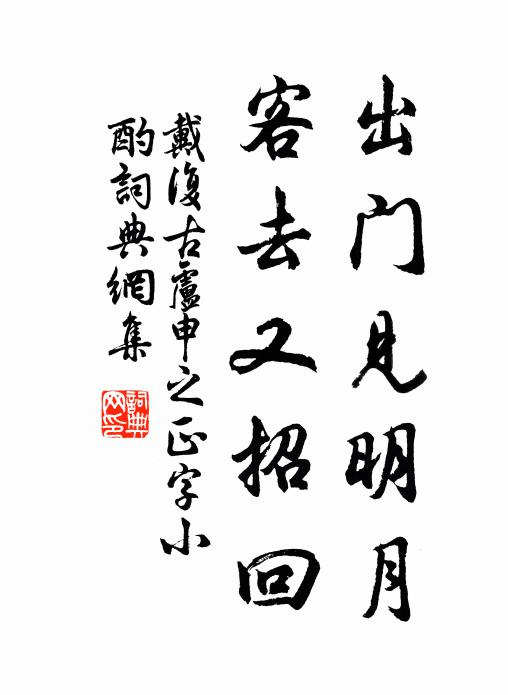 出门见明月
客去又招回
戴復古盧申之正字小
酌詞典網集
詞典網印